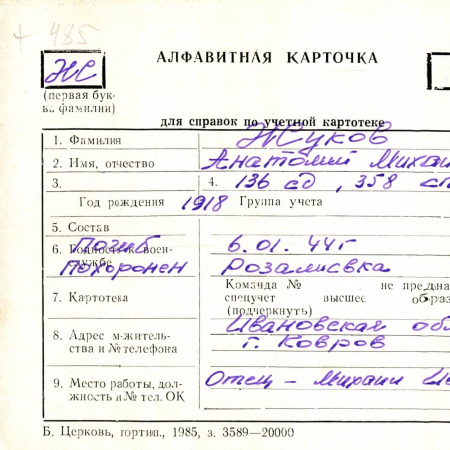 + 485
АЛФАВИТНАЯ КАРТОЧКА
Ж
(первая бук-
ва фамилии)
для справок по учетной картотеке
1. Фамилия Жуков
2. Имя, отчество Анатолий Михаи
3. 4. 136 сд, 358 сп
Год рождения 1918 Группа учета
5. Состав
6. Годность к воен-
ской службе Погиб 6.01.44г
Похоронен Розалиевка
Команда № не предна
7. Картотека спецучет высшее образ
(подчеркнуть)
8. Адрес м-жительства
и № телефона Ивановская обл
г. Ковров
9. Место работы, дол-
жность и № тел. ОК Отец - Михаил Ив
Б. Церковь, гортип., 1985, з. 3589—20000